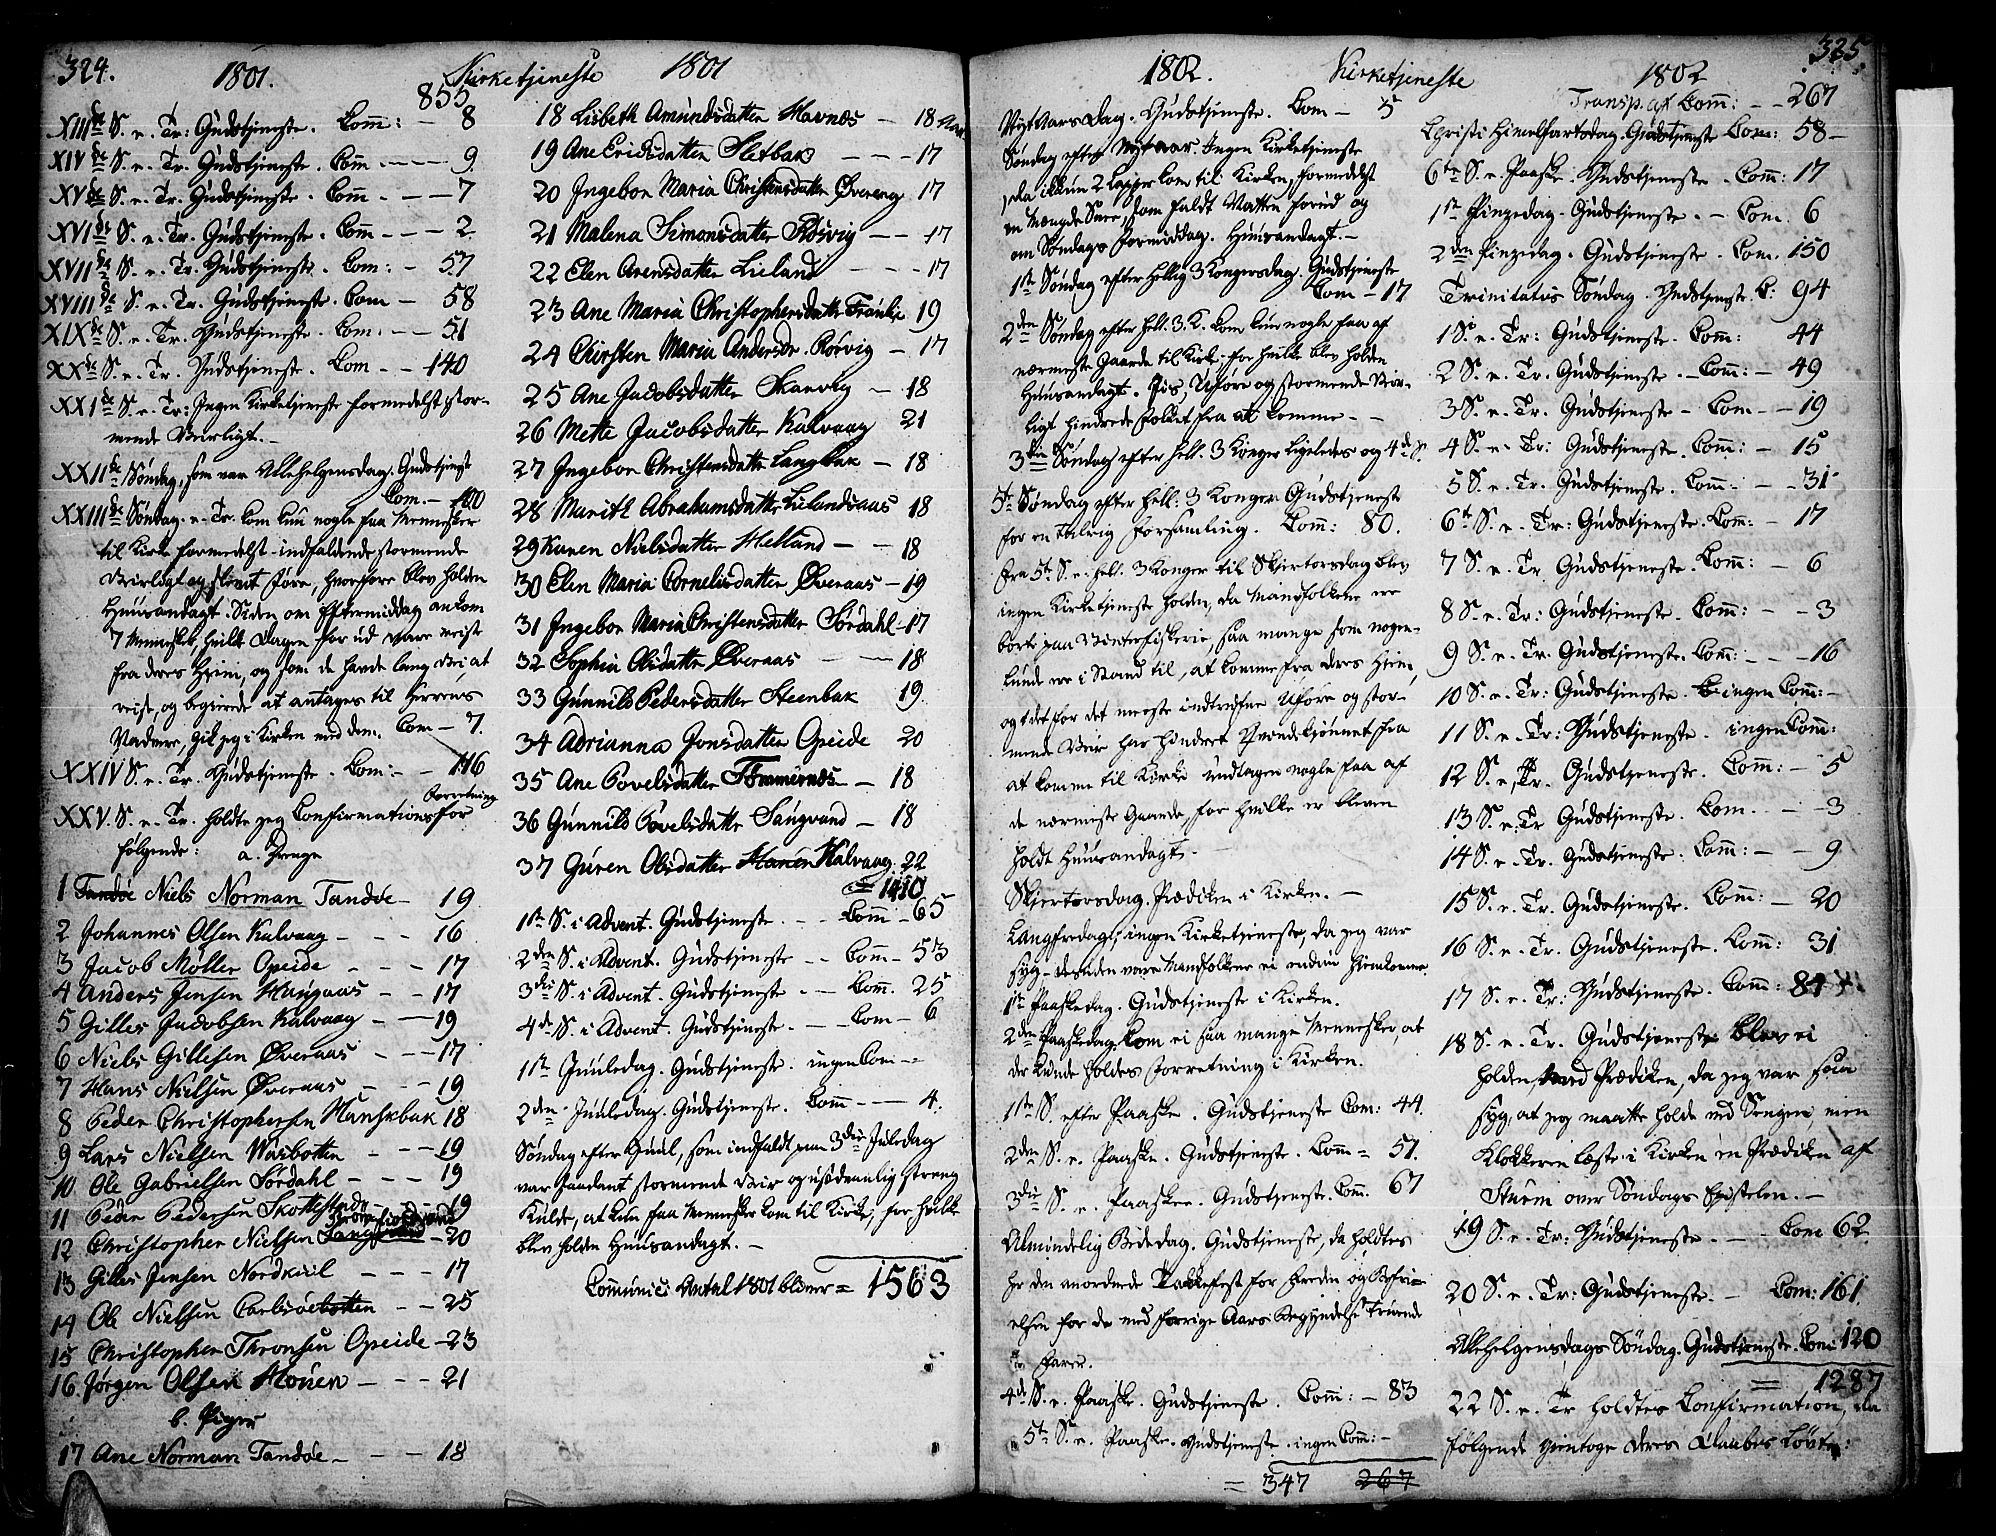 324.
1801.
Kirketjeneste
1801
855
XIII de S. e. Tr: Gudstjeneste. Com: — 8
XIV de S. e. Tr. Gudstjeneste. Com — — — 9.
XV de S. e. Tr. Gudstjeneste. Com — — 7
XVI de S. e. Tr. Gudstjeneste. Com — — — 2.
XVII de S. e. Tr. Gudstjeneste. Com: — 57
XVIII de S. e. Tr. Gudstjeneste. Com — 58
XIX de S. e. Tr. Gudstjeneste. Com: — — 51
XX de S. e. Tr. Gudstjeneste. Com — — 140
XXI de S. e. Tr: Ingen Kirketjeneste formedelst stor-
mende Veirligt. —
XXII de Söndag, som var Allehelgensdag. Gudstjenest
Com. — 100
XXIII de Söndag. e. Tr. kom kun nogle faa Mennesker
til Kirke formedelst indfaldende stormende
Veirligt og slemt Före, hvorfore blev holden
Huusandagt. Siden om Eftermiddag ankom
7 Mennesker, hvilke Dagen for ud vare reist
fra deres Hjem, og som de havde lang Vei, at
reise, og begierede at antages til Herrens
Nadvere, gik jeg i Kirken med dem. Com — 7.
XXIV S. e. Tr. Gudstjeneste. Com: — — 116
XXV. S. e. Tr. holdte jeg Confirmations Forretning for
følgende: a. Drenge
1 Tandöe Niels Norman Tandöe — 19.
2 Johannes Olsen Kalvaag — — 16
3 Jacob Möller Opeide — — — 17
4 Anders Jensen Haugaas — — 17
5 Gilles Jacobsen Kalvaag — — 19
6 Niels Gillesen Øveraas — — — 17
7 Hans Nielsen Øveraas — — — 19
8 Peder Christophersen Hanskbak 18
9 Lars Nielsen Wasbotten — — — 19
10 Ole Gabrielsen Sørdahl — — — 19
11 Peder Pedersen Skottestad — — 19
12 Christopher Nielsen — 20
13 Gilles Jensen Nordkiil — — — 17
14 Ole Nielsen Carlsöebotten — — 25
15 Christopher Thronsen Opeide — 23
16 Jørgen Olsen Monen — — — 21
b. Piger
17 Ane Norman Tandöe — — — 18
18 Lisbeth Amundsdatter Havnæs — 18 Aar
19 Ane Ericksdatter Sletbak — — — 17
20 Ingebor Maria Christensdatter Øvereng 17
21 Malena Simonsdatter Rösvig — — 17
22 Elen Arensdatter Lieland — — — 17
23 Ane Maria Christophersdatter 19
24 Chirsten Maria Andersdr. Rörvig — 17
25 Ane Jacobsdatter Skarvig — 18
26 Mette Jacobsdatter Kalvaag 21
27 Ingebor Christensdatter Langbak — 18
28 Marith Abrahamsdatter Lielandsaas 18
29 Karen Nielsdatter Helland — — 18
30 Elen Maria Cornelisdatter Øveraas — 19
31 Ingebor Maria Christensdatter Sördahl — 17
32 Sophia Olsdatter Øveraas — — 18
33 Gunnild Pedersdatter Steenbak 19
34 Adrianna Jonsdatter Opeide 20
35 Ane Povelsdatter Tömmernæs — 18
36 Gunnild Povelsdatter Sangvand — 18
37 Guren Olsdatter Kalvaag. 22
= 1410
1ste S. i Advent. Gudstjeneste. — — Com — 65
2den S. i Advent. Gudstjeneste — — Com — 53
3die S. i Advent. Gudstjeneste — — Com. 25
4de S. i Advent. Gudstjeneste. — — Com — 6
1ste Juuledag. Gudstjeneste. ingen Com —
2den Juuledag. Gudstjeneste. Com — — 4.
Söndag efter Juul, som indfaldt paa 3die Juledag
var saadant stormende Veir og usædvanlig streng
Kulde, at kun faa Mennesker kom til Kirke, for hvilke
blev holden Huusandagt. —
Communic: Antal 1801 bliver = 1563
325.
1802.
Kirketjeneste
1802
Nyt Aars Dag. Gudstjeneste. Com — 5
Söndag efter Nyt aar. Ingen Kirketjeneste
da ikkun 2 Lapper kom til Kirken, formedelst
en Mængde Snee, som faldt Natten forud og
om Söndags Formiddag. Huusandagt. —
1ste Söndag efter Hellig 3 Kongersdag. Gudstjeneste
Com — 17
2den Söndag efter Hell. 3. K. kom kun nogle faa af
nærmeste Gaarde til Kirke, for hvilke blev holden
Huusandagt. Iis, Uföre og stormende Veir-
ligt hindrede Folket fra at komme — —
3die Söndag efter Hell. 3 Konger ligeledes og 4de S.
5te Söndag efter Hell. 3 Konger Gudstjeneste
for en talrig Forsamling. Com: 80.
Fra 5te S. e. Hell. 3 Konger til Skjertorsdag blev
ingen Kirketjeneste holden, da Mandfolkene ere
borte paa Vinterfiskerie, saa mange som nogen-
lunde ere i Stand til, at komme fra deres Hjem,
og det for det meeste indtrufne Uföre og stor-
mende Veir har hindret Qvindekjönnet fra
at komme til Kirke undtagen nogle faa af
de nærmeste Gaarde, for hvilke er bleven
holdt Huusandagt. —
Skjertorsdag. Prædiken i Kirken. —
Langfredag, ingen Kirketjeneste, da jeg var
syg — desuden vare Mandfolkene ei endnu hjemkomne.
1ste Paaskedag. Gudstjeneste i Kirken.
2den Paaskedag. kom ei saa mange Mennesker, at
der kunde holdes Forretning i Kirken.
1ste S. efter Paaske. Gudstjeneste Com: 44.
2den S. e. Paaske. Gudstjeneste. Com = 51.
3die S. e. Paaske. Gudstjeneste. Com. 67
Almindelig Bededag. Gudstjeneste, da holdtes
her den anordnede Takkefest for Freden og Befri-
elsen for de ved forrige Aars Begyndelse truende
Farer.
4de S. e. Paaske. Gudstjeneste. Com: — 83
5te S. e. Paaske. Gudstjeneste. ingen Com: —
= 347 267
Transp. af Com: — — 267
Christi Himelfartsdag. Gudstjeneste Com: 58 —
6te S. e. Paaske. Gudstjeneste. Com: 17
1ste Pingsedag. Gudstjeneste. — Com. 6
2den Pingsedag. Gudstjeneste. Com. 150
Trinitatis Söndag. Gudstjeneste. C: 94
1 S. e. Tr: Gudstjeneste. Com: 44
2 S. e. Tr. Gudstjeneste. — Com: — 49
3 S. e. Tr. Gudstjeneste — Com. — — 19
4 S. e. Tr: Gudstjeneste. Com: — 15
5 S. e. Tr. Gudstjeneste. Com: — — 31
6te S. e. Tr: Gudstjeneste. Com: — 17
7 S. e. Tr Gudstjeneste. Com: — 6
8 S. e. Tr: Gudstjeneste. Com: — — 3
9 S. e. Tr. Gudstjeneste. Com: — — 16
10 S. e. Tr: Gudstjeneste. ingen Com: —
11 S. e. Tr: Gudstjeneste. ingen Com:
12 S. e. Tr. Gudstjeneste. Com: — 5
13 S. e. Tr Gudstjeneste. Com. — — 3
14 S. e. Tr. Gudstjeneste. Com: — — 9
15 S. e. Tr. Gudstjeneste. Com: — 20
16 S. e. Tr. Gudstjeneste. Com: 31
17 S. e. Tr: Gudstjeneste. Com: 84
18 S. e. Tr. Gudstjeneste blev ei
holden med Prædiken, da jeg var saa
syg, at jeg maatte holde ved Sengen, men
Klokkeren læste i Kirken en Prædiken af
Sturm over Söndags Epistelen. —
19 S. e. Tr: Gudstjeneste. — — — Com 62.
20 S. e. Tr: Gudstjeneste. — Com: 161.
Allehelgensdags Söndag. Gudstjeneste. Com: 120
= 1287
22 S. e. Tr holdtes Confirmation, da
følgende igientoge deres Daabes Løvte: